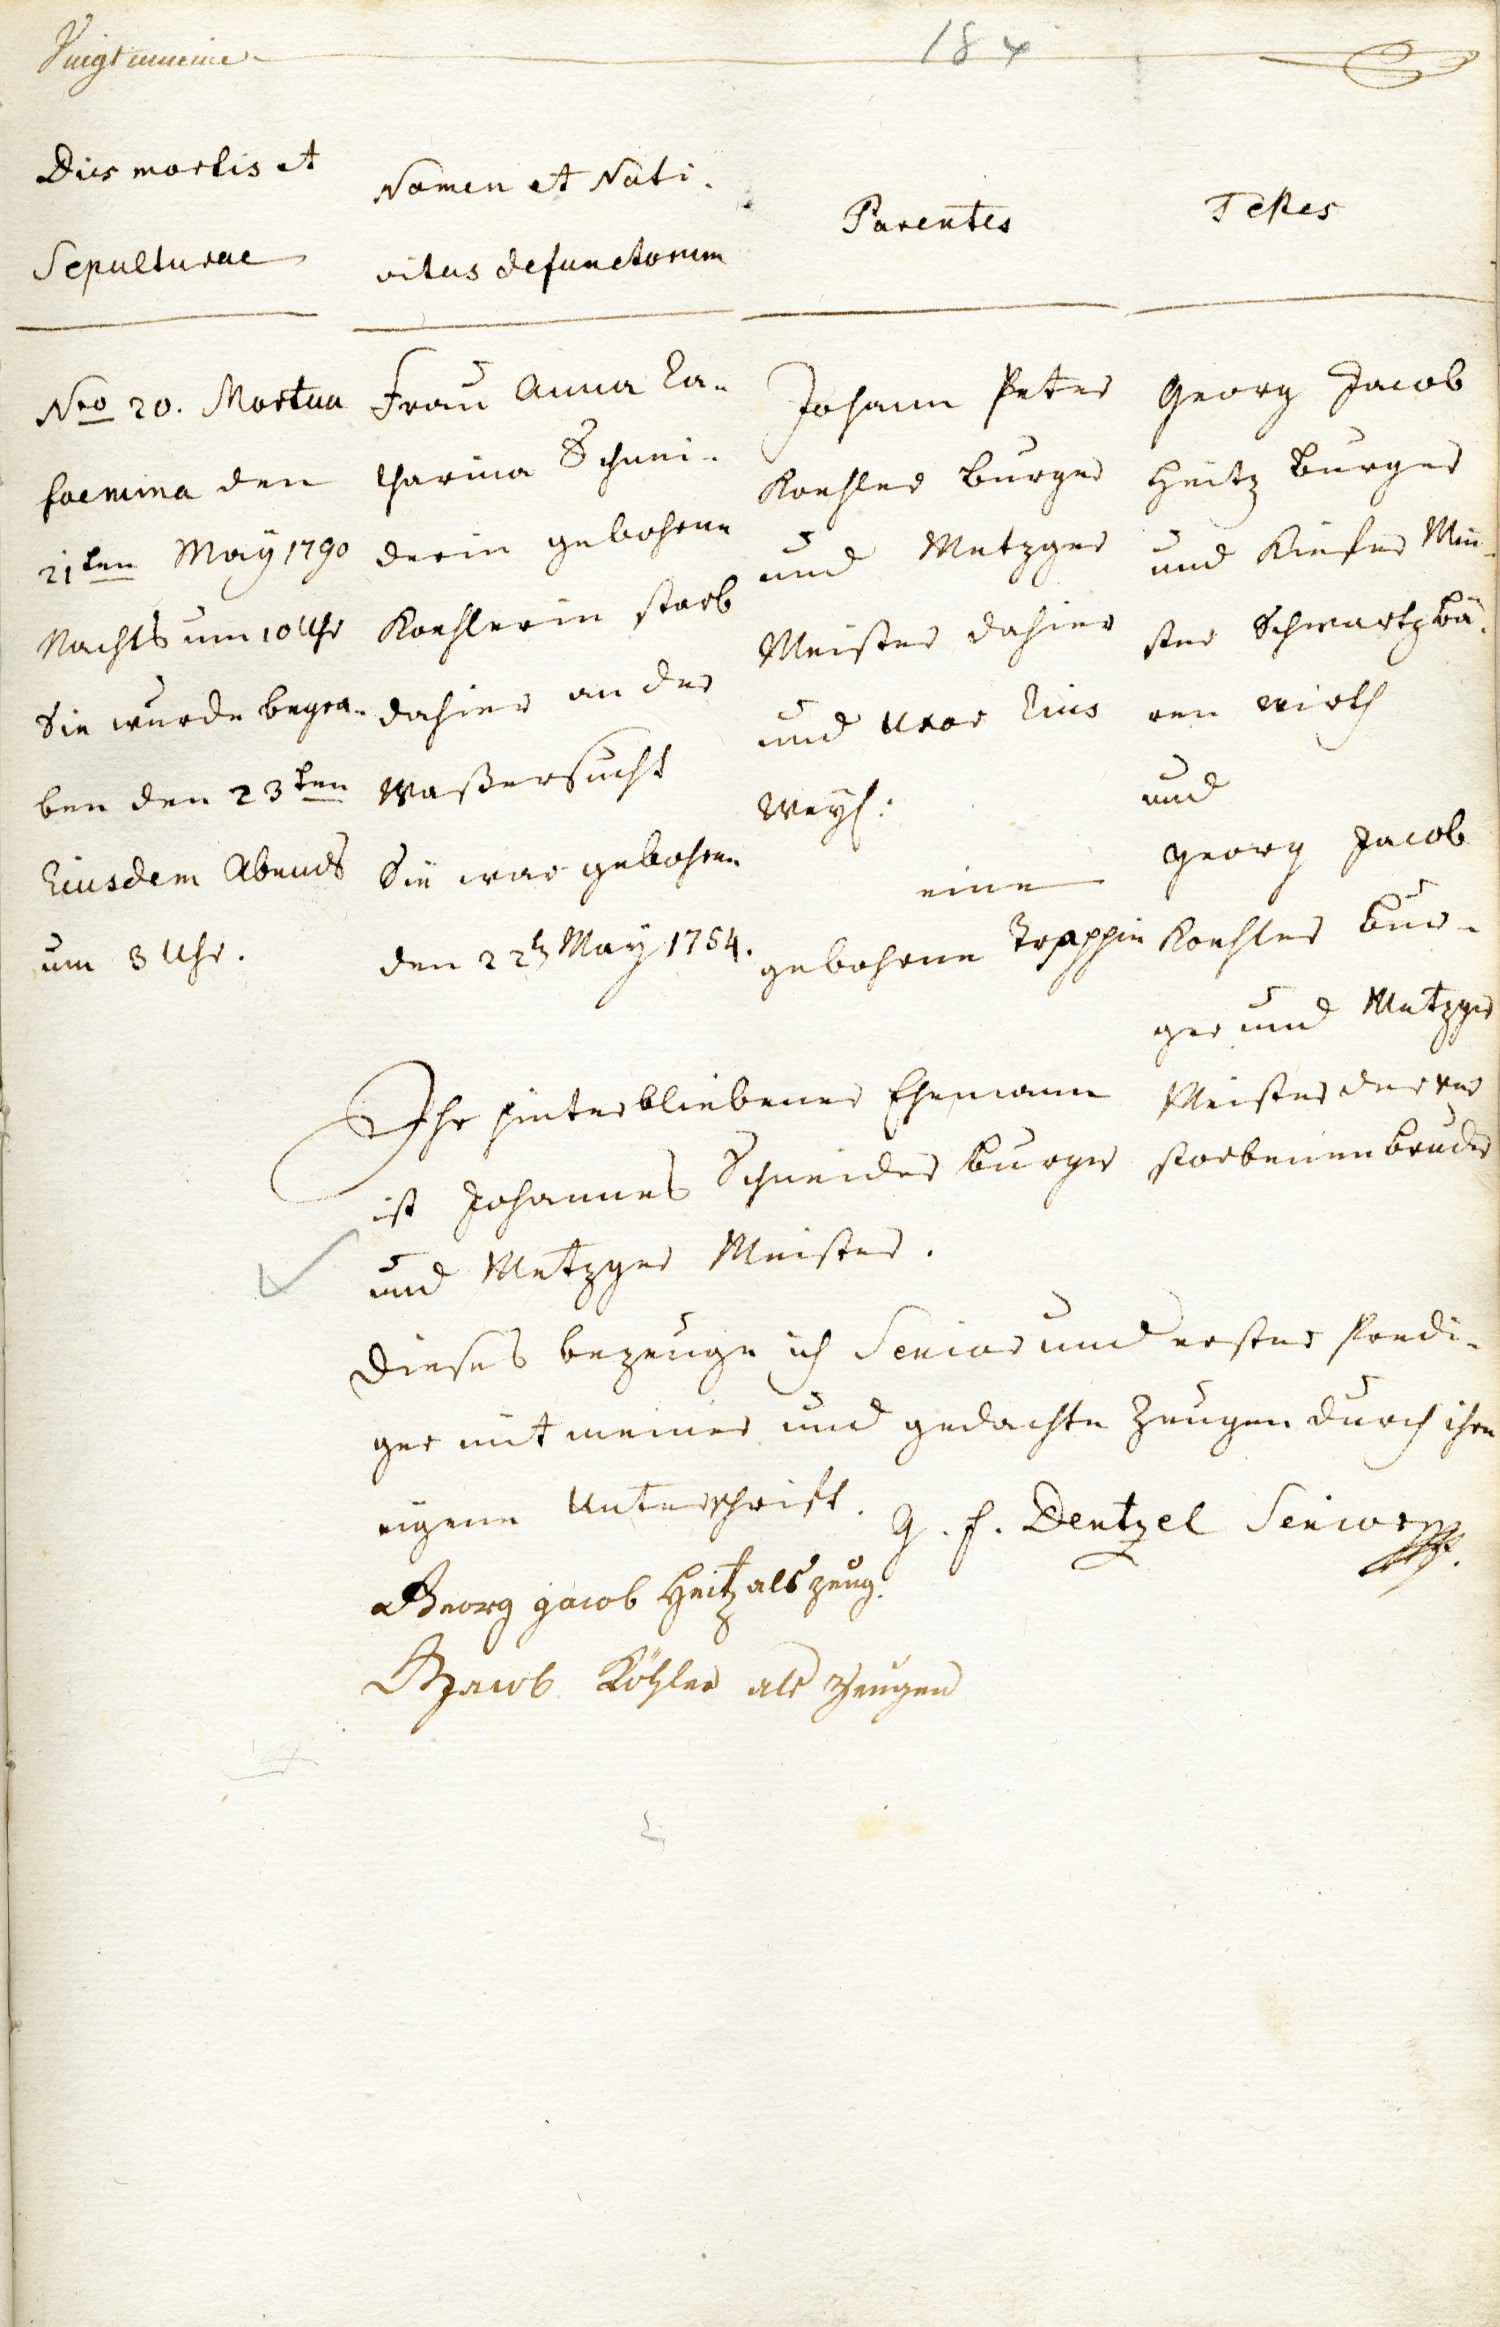 Vingt unieme
184
Dies mortis et
Sepulturae
Nomen et Nati-
vitas defunctorum
Parentes
Testes
Nro 20. Mortua
foemina den
21ten Maÿ 1790
Nachts um 10 Uhr
Sie wurde begra-
ben den 23ten
Eiusdem Abends
um 3 Uhr.
Frau Anna Ca-
tharina Schnei-
derin gebohrne
Koehlerin starb
dahier an der
Waßersucht
Sie war gebohren
den 22t May 1754.
Johann Peter
Koehler Burger
und Metzger
Meister dahier
und Uxor Eius
Weyl:
eine
gebohrne Trappin
Georg Jacob
Heitz Burger
und Kiefer Mei-
ster Schwartzbä-
ren wirth
und
Georg Jacob
Koehler Bur-
ger und Metzger
Meister der ver
storbenen Bruder
Ihr hinterbliebener Ehemann
ist Johannes Schneider Burger
und Metzger Meister.
Dieses bezeuge ich Senior und erster Predi-
ger mit meiner und gedachte Zeugen durch ihre
eigene Unterschrift. G. F. Dentzel Senior
Georg Jacob Heitz als zeug.
G Jacob Köhler als Zeugen